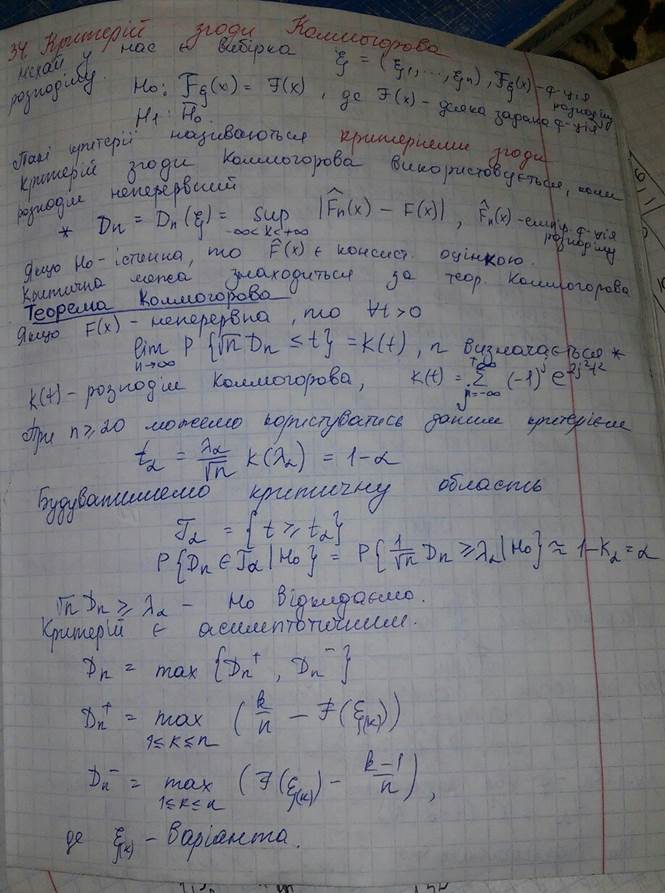 34 Критерій згоди Колмогорова
Нехай у нас є вибірка ξ = (ξ₁, ..., ξn), Fξ(x) - ф-ція розподілу.
H₀: Fξ(x) = F(x), де F(x) - деяка задана ф-ція розподілу
H₁: H̄₀
Такі критерії називаються критеріями згоди
Критерій згоди Колмогорова використовується, коли
розподіл неперервний
* Dn = Dn(ξ) = sup |F̂n(x) - F(x)|, F̂n(x) - емпір. ф-ція розподілу
-∞<x<+∞
Якщо H₀ - істинна, то F̂(x) є консист. оцінкою.
Критична межа знаходиться за теор. Колмогорова
Теорема Колмогорова
Якщо F(x) - неперервна, то ∀t > 0
lim P{√n Dn ≤ t} = K(t), n визначається *
n→∞
K(t) - розподіл Колмогорова, K(t) = Σ (-1)ʲ e
j=-∞ +∞
При n ≥ 20 можемо користуватись даним критерієм
tα = λα/√n K(λα) = 1-α
Будуватимемо критичну область
𝒯α = {t ≥ tα}
P{Dn ∈ 𝒯α | H₀} = P{1/√n Dn ≥ λα | H₀} ≈ 1-Kα = α
√n Dn ≥ λα - H₀ відкидаємо.
Критерій є асимптотичним.
Dn = max {Dn⁺, Dn⁻}
Dn⁺ = max (k/n - F(ξ(k)))
1≤k≤n
Dn⁻ = max (F(ξ(k)) - (k-1)/n),
1≤k≤n
де ξ(k) - варіанта.